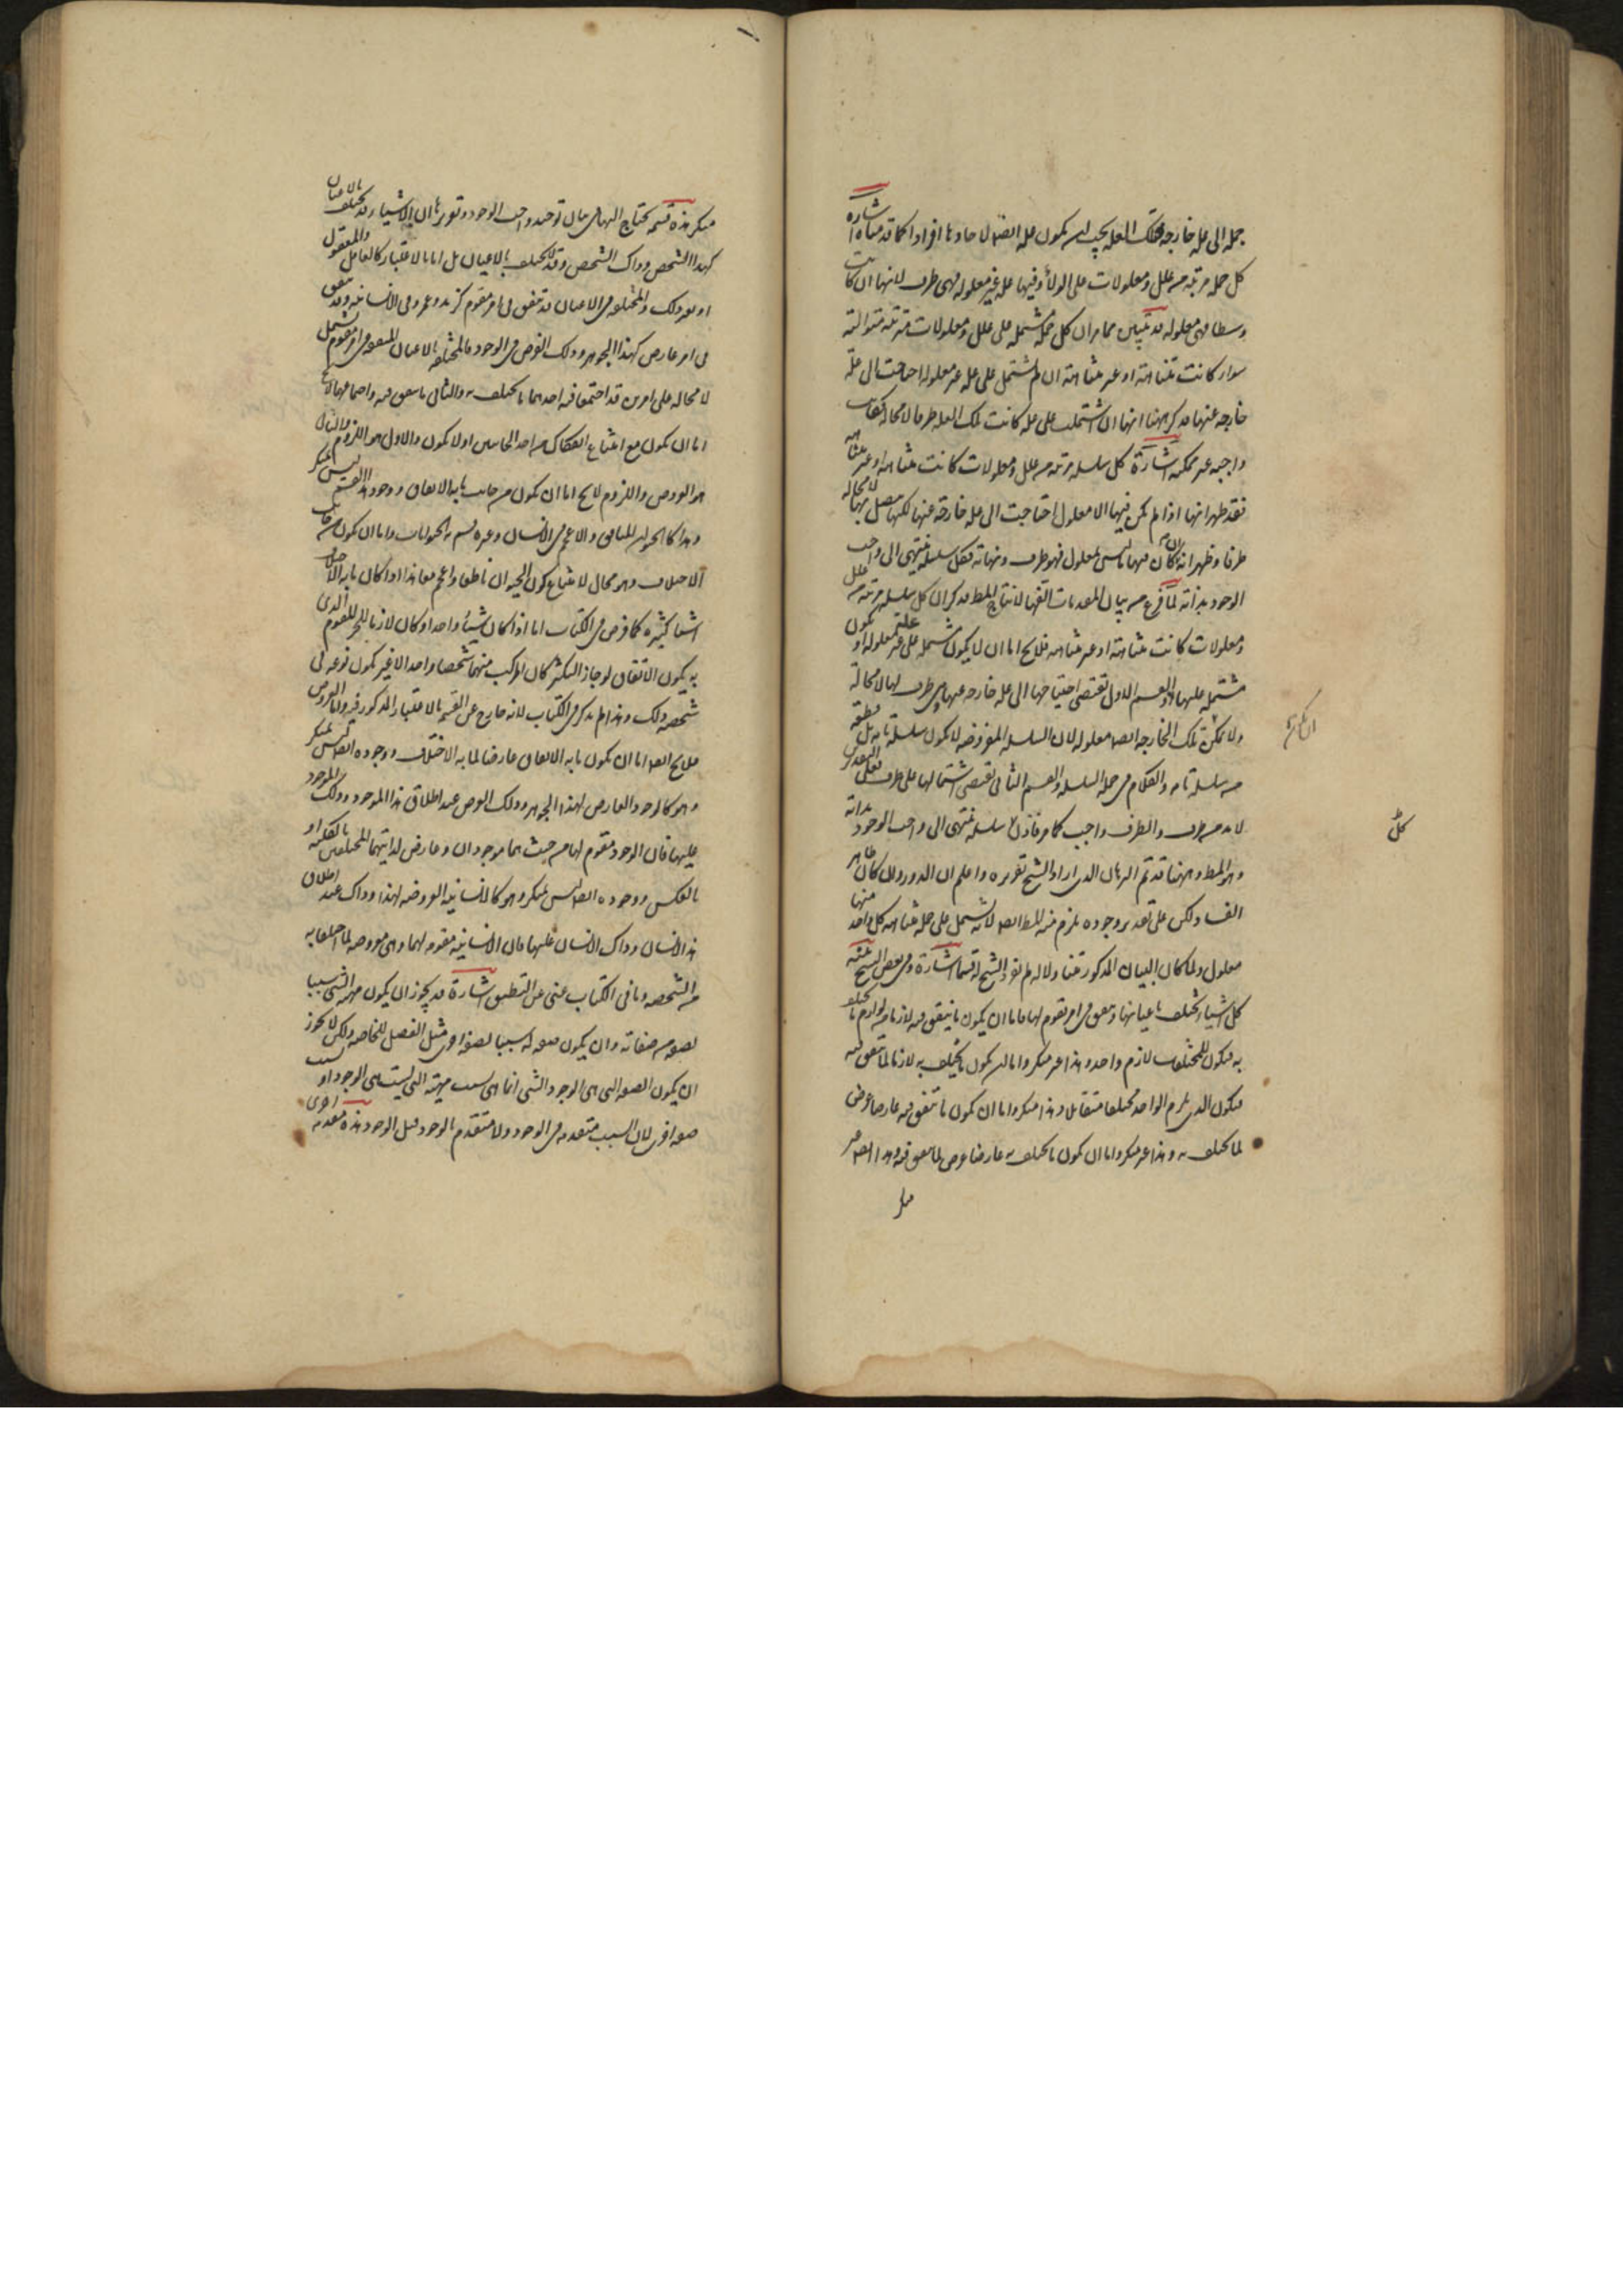 جملة الى علة خارجة فتلك العلة يجب ان يكون علة ايضا لاحادها افرادا كما قد مناه اشارة
كل جملة مرتبة من علل ومعلولات على الولاء وفيها علة غير معلولة فهى طرف لانها ان كانت
وسطا فهى معلولة قد تبين مما مر ان كل جملة مشتملة على علل ومعلولات مترتبة متوالية
سواء كانت متناهية او غير متناهية ان لم تشتمل على علة غير معلولة احتاجت الى علة
خارجة عنها فذكر ههنا انها ان اشتملت على علة كانت تلك العلة طرفا لا محالة
واجبة غير ممكنة اشارة كل سلسلة مرتبة من علل ومعلولات كانت متناهية او غير متناهية
فقد ظهر انها اذا لم يكن فيها الا معلول احتاجت الى علة خارجة عنها لكنها يتصل بها لا محالة
طرفا وظهر انه ان كان فيها ما ليس بمعلول فهو طرف ونهاية فكل سلسلة ينتهى الى واجب
الوجود بذاته لما فرغ من بيان المقدمات الفها لانتاج المط فذكر ان كل سلسلة مرتبة من علل
ومعلولات كانت متناهية او غير متناهية فلا يخ اما ان لا يكون مشتملة على علة غير معلولة او يكون
مشتملة عليها والقسم الاول يقتضى احتياجها الى علة خارجة عنها هى طرف لها لا محالة
ولا يمكن تلك الخارجة ايضا معلولة لان السلسلة المفروضة لا يكون سلسلة تامة بل قطعة
من سلسلة تامة والكلام فى جملة السلسلة والقسم الثانى يقتضى اشتمالها على طرف فعلى التقديرين
لا بد من طرف والطرف واجب كما مر فاذن كل سلسلة ينتهى الى واجب الوجود بذاته
وهو المط وههنا قد تم البرهان الذى اراد الشيخ تقريره واعلم ان الدور وان كان ظاهر
الفساد لكن على تقدير وجوده يلزم منه المط ايضا لانه يشتمل على جملة متناهية كل واحد منها
معلول ولما كان البيان المذكور متناولا له لم يفرد الشيخ له قسما اشارة وفى بعض النسخ
كل اشياء تختلف باعيانها وتتفق فى امر مقوم لها فاما ان يكون ما يتفق فيه لازما من لوازم ما يختلف
به فيكون للمختلفات لازم واحد وهذا غير منكر واما ان يكون ما يختلف به لازما لما يتفق فيه
فيكون الذى يلزم الواحد مختلفا متقابلا وهذا منكر واما ان يكون ما يتفق فيه عارضا عرض
لما يختلف به وهذا غير منكر واما ان يكون ما يختلف به عارضا عرض لما يتفق فيه وهذا ايضا غير
منكر
كل
منكر هذه قسمة يحتاج اليها فى بيان توحيد واجب الوجود وتقريرها ان الاشياء قد يختلف بالاعيان
كهذا الشخص وذاك الشخص وقد لا يختلف بالاعيان بل اما بالاعتبار كالعاقل والمعقول
او بغير ذلك والمختلفة فى الاعيان قد تتفق فى امر مقوم كزيد وعمرو فى الانسانية وقد تتفق
فى امر عارض كهذا الجوهر وذلك العرض فى الوجود فالمختلفة بالاعيان المتفقة فى امر مقوم يشتمل
لا محالة على امرين قد اجتمعا فيه احدهما ما يختلف به والثانى ما يتفق فيه واجتماعهما لا يخ
اما ان يكون مع امتناع انفكاك من احد الجانبين او لا يكون والاول هو اللزوم والثانى
هو العروض واللزوم لا يخ اما ان يكون من جانب ما به الاتفاق ووجود هذا القسم ليس بمنكر
وهذا كالحيوان للناطق والاعجم فى الانسان وغيره من الحيوانات واما ان يكون من جانب
الاختلاف وهو محال لامتناع كون الحيوان ناطقا واعجم معا هذا اذا كان ما به الاختلاف
اشياء كثيرة كما فرض فى الكتاب اما اذا كان شيئا واحدا وكان لازما للجزء المقوم الذى
به يكون الاتفاق لو جاز التكثر كان المركب منهما شخصا واحدا لا غير يكون نوعه فى
شخصه ذلك وهذا لم يذكر فى الكتاب لانه خارج عن القسم بالاعتبار المذكور فيه واما العروض
فلا يخ ايضا اما ان يكون ما به الاتفاق عارضا لما به الاختلاف ووجوده ايضا ليس بمنكر
وهو كالوجود العارض لهذا الجوهر وذلك العرض عند اطلاق هذا الموجود وذلك الموجود
عليهما فان الوجود مقوم لهما من حيث هما موجودان وعارض لذاتيهما المختلفين بالكلية او
بالعكس ووجوده ايضا ليس بمنكر وهو كالانسانية المعروضة لهذا وذاك عند اطلاق
هذا الانسان وذاك الانسان عليهما فان الانسانية مقومة لهما وهى معروضة لما اختلفا به
من الشخصية وما فى الكتاب غنى عن التطبيق اشارة قد يجوز ان يكون مهية الشئ سببا
لصفة من صفاته وان يكون صفة له سببا لصفة اخرى مثل الفصل للخاصة ولكن لا يجوز
ان يكون الصفة التى هى الوجود للشئ انما هى بسبب مهيته التى ليست هى الوجود او بسبب
صفة اخرى لان السبب متقدم فى الوجود ولا متقدم بالوجود قبل الوجود هذه مقدمة اخرى